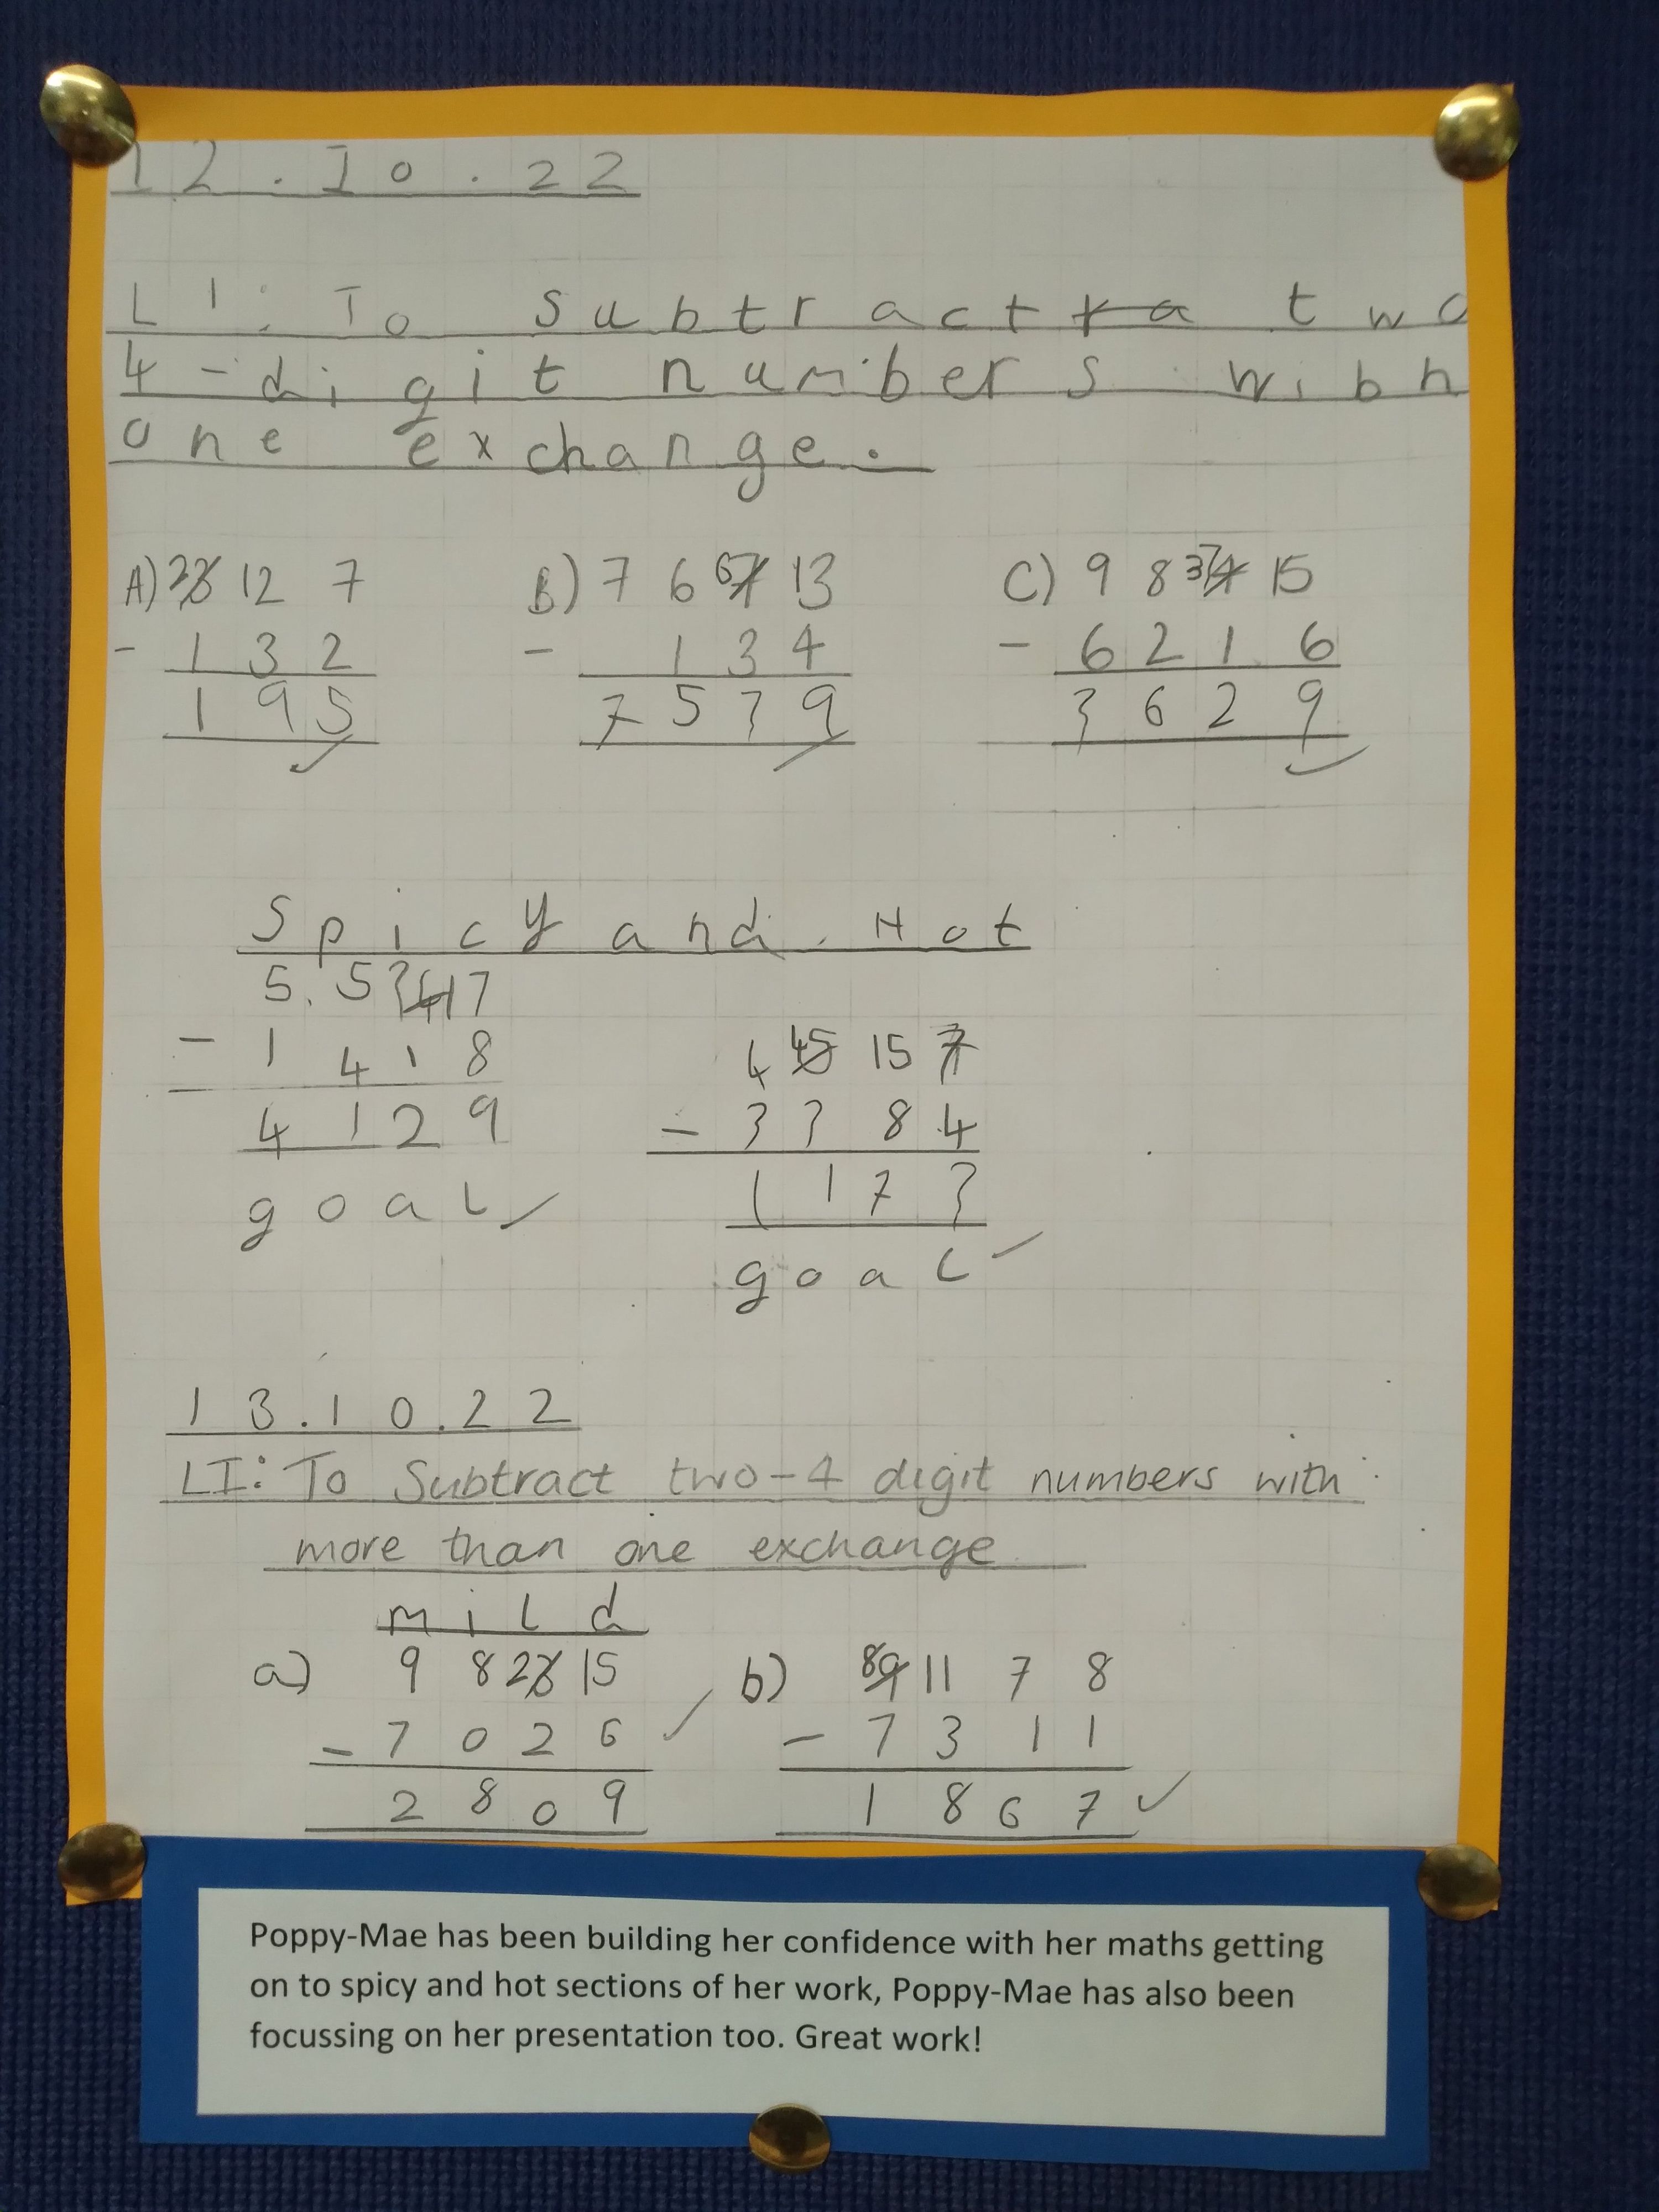 12.10.22
LI: To subtract two
4-digit numbers with
one exchange.
A) 23 12 7 B) 7 6 67 13 C) 9 8 3 4 15
- 132 - 134 - 6216
195 7539 3629
Spicy and Hot
5.5 3 4 17
- 1418 4 45 15 7
4129 - 3384
goal 1173
goal
13.10.22
LI: To Subtract two-4 digit numbers with
more than one exchange
mild
a) 9 8 23 15 b) 89 11 7 8
- 7026 - 7311
2809 1867
Poppy-Mae has been building her confidence with her maths getting
on to spicy and hot sections of her work, Poppy-Mae has also been
focussing on her presentation too. Great work!